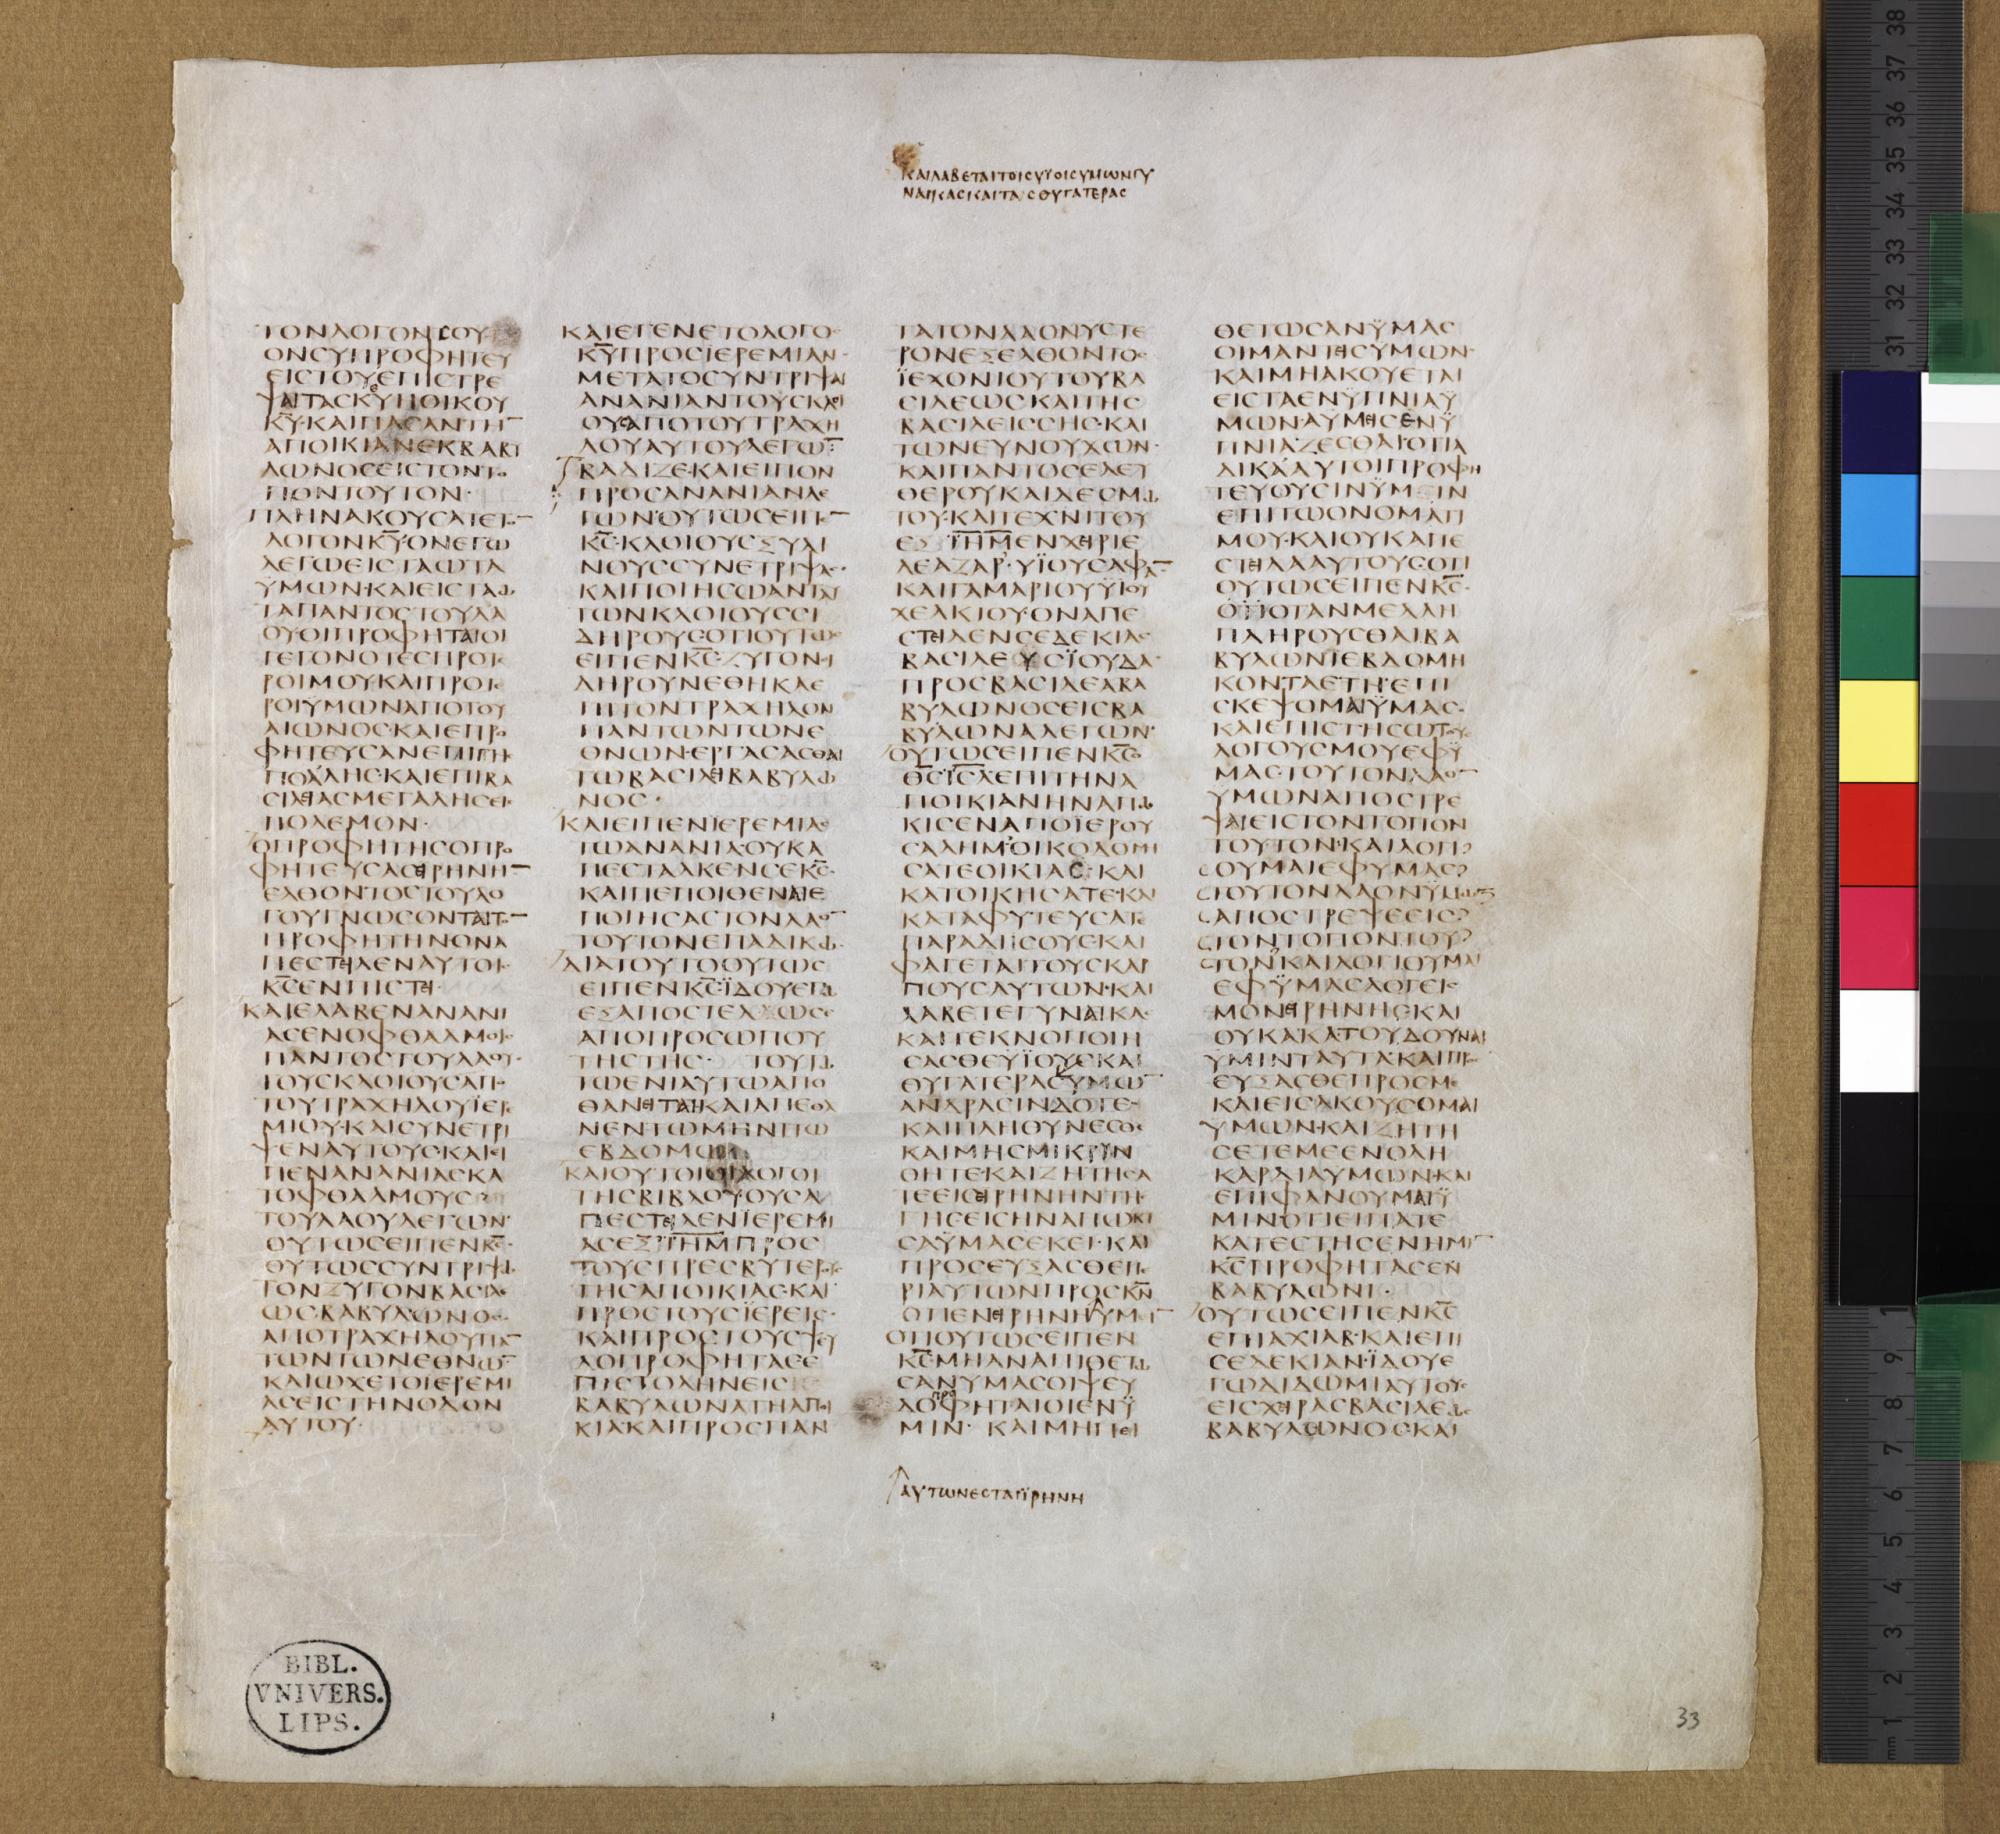 ΚΑΙΛΑΒΕΤΑΙΤΟΙCΥΪΟΙCΥΜΩΝΓΥ
ΝΑΙΚΑCΚΑΙΤΑCΘΥΓΑΤΕΡΑC
ΤΟΝΛΟΓΟΝCΟΥ
ΟΝCΥΠΡΟΦΗΤΕΥ
ΕΙCΤΟΥΕΠΙCΤΡΕ
ΨΑΙΤΑCΚΕΥΗΟΙΚΟΥ
ΚΥ·ΚΑΙΠΑCΑΝΤΗ
ΑΠΟΙΚΙΑΝΕΚΒΑΒΥ
ΛΩΝΟCΕΙCΤΟΝΤΟ
ΠΟΝΤΟΥΤΟΝ·
ΠΛΗΝΑΚΟΥCΑΤΕΤΟ
ΛΟΓΟΝΚΥΟΝΕΓΩ
ΛΕΓΩΕΙCΤΑΩΤΑ
ΥΜΩΝ·ΚΑΙΕΙCΤΑΩ
ΤΑΠΑΝΤΟCΤΟΥΛΑ
ΟΥΟΙΠΡΟΦΗΤΑΙΟΙ
ΓΕΓΟΝΟΤΕCΠΡΟΤΕ
ΡΟΙΜΟΥΚΑΙΠΡΟΤΕ
ΡΟΙΥΜΩΝΑΠΟΤΟΥ
ΑΙΩΝΟC·ΚΑΙΕΠΡΟ
ΦΗΤΕΥCΑΝΕΠΙΓΗ
ΠΟΛΛΗC·ΚΑΙΕΠΙΒΑ
CΙΛΕΙΑCΜΕΓΑΛΗCΕΙC
ΠΟΛΕΜΟΝ·
ΟΠΡΟΦΗΤΗCΟΠΡΟ
ΦΗΤΕΥCΑCΕΙΡΗΝΗ
ΕΛΘΟΝΤΟCΤΟΥΛΟ
ΓΟΥΓΝΩCΟΝΤΑΙΤΟ
ΠΡΟΦΗΤΗΝΟΝΑ
ΠΕCΤΕΙΛΕΝΑΥΤΟΙC
ΚCΕΝΠΙCΤΕΙ·
ΚΑΙΕΛΑΒΕΝΑΝΑΝΙ
ΑCΕΝΟΦΘΑΛΜΟΙC
ΠΑΝΤΟCΤΟΥΛΑΟΥ·
ΤΟΥCΚΛΟΙΟΥCΑΠΟ
ΤΟΥΤΡΑΧΗΛΟΥΪΕΡΕ
ΜΙΟΥ·ΚΑΙCΥΝΕΤΡΙ
ΨΕΝΑΥΤΟΥCΚΑΙΕΙ
ΠΕΝΑΝΑΝΙΑCΚΑ
ΤΟΦΘΑΛΜΟΥC
ΤΟΥΛΑΟΥΛΕΓΩΝ·
ΟΥΤΩCΕΙΠΕΝΚC·
ΟΥΤΩCCΥΝΤΡΙΨΩ
ΤΟΝΖΥΓΟΝΒΑCΙΛΕ
ΩC·ΒΑΒΥΛΩΝΟC
ΑΠΟΤΡΑΧΗΛΟΥΠΑ
ΤΩΝΤΩΝΕΘΝΩ
ΚΑΙΩΧΕΤΟΙΕΡΕΜΙ
ΑCΕΙCΤΗΝΟΔΟΝ
ΑΥΤΟΥ·
ΚΑΙΕΓΕΝΕΤΟΛΟΓΟC
ΚΥΠΡΟCΪΕΡΕΜΙΑΝ·
ΜΕΤΑΤΟCΥΝΤΡΙΨΑΙ
ΑΝΑΝΙΑΝΤΟΥCΚΛΟΙ
ΟΥCΑΠΟΤΟΥΤΡΑΧΗ
ΛΟΥΑΥΤΟΥΛΕΓΩ
ΒΑΔΙΖΕ·ΚΑΙΕΙΠΟΝ
ΠΡΟCΑΝΑΝΙΑΝΛΕ
ΓΩΝ·ΟΥΤΩCΕΙΠΕ
ΚC·ΚΛΟΙΟΥCΞΥΛΙ
ΝΟΥCCΥΝΕΤΡΙΨΑC·
ΚΑΙΠΟΙΗCΩΑΝΤΑΥ
ΤΩΝΚΛΟΙΟΥCCΙ
ΔΗΡΟΥCΟΤΙΟΥΤΩC
ΕΙΠΕΝΚC·ΖΥΓΟΝCΙ
ΔΗΡΟΥΝΕΘΗΚΑΕ
ΠΙΤΟΝΤΡΑΧΗΛΟΝ
ΠΑΝΤΩΝΤΩΝΕ
ΘΝΩΝ·ΕΡΓΑCΑCΘΑΙ
ΤΩΒΑCΙΛΕΙΒΑΒΥΛΩ
ΝΟC·
ΚΑΙΕΙΠΕΝΪΕΡΕΜΙΑC
ΤΩΑΝΑΝΙΑ·ΟΥΚΑ
ΠΕCΤΑΛΚΕΝCΕΚC·
ΚΑΙΠΕΠΟΙΘΕΝΑΙΕ
ΠΟΙΗCΑCΤΟΝΛΑΟ
ΤΟΥΤΟΝΕΠΑΔΙΚΩ·
ΔΙΑΤΟΥΤΟΟΥΤΩC
ΕΙΠΕΝΚC·ΪΔΟΥΕΓΩ
ΕΞΑΠΟCΤΕΛΩCΕ
ΑΠΟΠΡΟCΩΠΟΥ
ΤΗCΓΗC· ΤΟΥΤΩ
ΤΩΕΝΙΑΥΤΩΑΠΟ
ΘΑΝΕΙΤΑΙ·ΚΑΙΑΠΕΘΑ
ΝΕΝΤΩΜΗΝΙΤΩ
ΕΒΔΟΜΩ
ΚΑΙΟΥΤΟΙΟΙΛΟΓΟΙ
ΤΗCΒΙΒΛΟΥΟΥCΑ
ΠΕCΤΕΙΛΕΝΪΕΡΕΜΙ
ΑCΕΞΪΗΜΠΡΟC
ΤΟΥCΠΡΕCΒΥΤΕΡΟΥC
ΤΗCΑΠΟΙΚΙΑC·ΚΑΙ
ΠΡΟCΤΟΥCΪΕΡΕΙC·
ΚΑΙΠΡΟCΤΟΥCΨΕΥ
ΔΟΠΡΟΦΗΤΑCΕ
ΠΙCΤΟΛΗΝΕΙC
ΒΑΒΥΛΩΝΑΤΗΑΠΟΙ
ΚΙΑ·ΚΑΙΠΡΟCΠΑΝ
ΤΑΤΟΝΛΑΟΝΥCΤΕ
ΡΟΝΕΞΕΛΘΟΝΤΟC
ΪΕΧΟΝΙΟΥΤΟΥΒΑ
CΙΛΕΩCΚΑΙΤΗC
ΒΑCΙΛΕΙCCΗC·ΚΑΙ
ΤΩΝΕΥΝΟΥΧΩΝ·
ΚΑΙΠΑΝΤΟCΕΛΕΥ
ΘΕΡΟΥΚΑΙΔΕCΜΩ
ΤΟΥ·ΚΑΙΤΕΧΝΙΤΟΥ
ΕΞΪΗΜΕΝΧΕΙΡΙΕ
ΛΕΑΖΑΡ·ΥΪΟΥCΑΦΑ
ΚΑΙΓΑΜΑΡΙΟΥΥΪΟΥ
ΧΕΛΚΙΟΥ·ΟΝΑΠΕ
CΤΕΙΛΕΝCΕΔΕΚΙΑC
ΒΑCΙΛΕΥCΪΟΥΔΑ·
ΠΡΟCΒΑCΙΛΕΑΒΑ
ΒΥΛΩΝΟCΕΙCΒΑ
ΒΥΛΩΝΑΛΕΓΩΝ·
ΟΥΤΩCΕΙΠΕΝΚCΟ
ΘCΙCΛΕΠΙΤΗΝΑ
ΠΟΙΚΙΑΝΗΝΑΠΩ
ΚΙCΕΝΑΠΟΪΕΡΟΥ
CΑΛΗΜ·ΟΙΚΟΔΟΜΗ
CΑΤΕΟΙΚΙΑC·ΚΑΙ
ΚΑΤΟΙΚΗCΑΤΕ·ΚΑΙ
ΚΑΤΑΦΥΤΕΥCΑΤΕ
ΠΑΡΑΔΙCΟΥC·ΚΑΙ
ΦΑΓΕΤΑΙΤΟΥCΚΑΡ
ΠΟΥCΑΥΤΩΝ·ΚΑΙ
ΛΑΒΕΤΕΓΥΝΑΙΚΑC
ΚΑΙΤΕΚΝΟΠΟΙΗ
CΑCΘΕΥΪΟΥC·ΚΑΙ
ΘΥΓΑΤΕΡΑCΥΜΩ
ΑΝΔΡΑCΙΝΔΟΤΕ·
ΚΑΙΠΛΗΘΥΝΕCΘΕ
ΚΑΙΜΗCΜΙΚΡΥΝ
ΘΗΤΕ·ΚΑΙΖΗΤΗCΑ
ΤΕΕΙCΕΙΡΗΝΗΝΤΗC
ΓΗCΕΙCΗΝΑΠΩΚΙ
CΑΥΜΑCΕΚΕΙ·ΚΑΙ
ΠΡΟCΕΥΞΑCΘΕΠΕ
ΡΙΑΥΤΩΝΠΡΟCΚΝ
ΟΤΙΕΝΕΙΡΗΝΗΥΜΩ
ΟΤΙΟΥΤΩCΕΙΠΕΝ
ΚC·ΜΗΑΝΑΠΙΘΕΤΩ
CΑΝΥΜΑCΟΙΨΕΥ
ΔΟΠΡΟΦΗΤΑΙΟΙΕΝΫ
ΜΙΝ· ΚΑΙΜΗΠΕΙ
ΘΕΤΩCΑΝΫΜΑC
ΟΙΜΑΝΤΕΙCΥΜΩΝ·
ΚΑΙΜΗΑΚΟΥΕΤΑΙ
ΕΙCΤΑΕΝΥΠΝΙΑΫ
ΜΩΝ·ΑΥΜΕΙCΕΝΫ
ΠΝΙΑΖΕCΘΑΙ·ΟΤΙΑ
ΔΙΚΑΑΥΤΟΙΠΡΟΦΗ
ΤΕΥΟΥCΙΝΫΜΙΝ
ΕΠΙΤΩΟΝΟΜΑΤΙ
ΜΟΥ·ΚΑΙΟΥΚΑΠΕ
CΤΕΙΛΑΑΥΤΟΥC·ΟΤΙ
ΟΥΤΩCΕΙΠΕΝΚC·
ΟΤΙΟΤΑΝΜΕΛΛΗ
ΠΛΗΡΟΥCΘΑΙΒΑ
ΒΥΛΩΝΙΕΒΔΟΜΗ
ΚΟΝΤΑΕΤΗ·ΕΠΙ
CΚΕΨΟΜΑΙΫΜΑC·
ΚΑΙΕΠΙCΤΗCΩΤΟΥC
ΛΟΓΟΥCΜΟΥΕΦΫ
ΜΑC·ΤΟΥΤΟΝΛΑΟ
ΥΜΩΝΑΠΟCΤΡΕ
ΨΑΙΕΙCΤΟΝΤΟΠΟΝ
ΤΟΥΤΟΝ·ΚΑΙΛΟΓΙ
ΟΥΜΑΙΕΦΥΜΑC
ΤΟΥΤΟΝΛΑΟΝΥΜΩ
ΑΠΟCΤΡΕΨΕΕΙC
ΤΟΝΤΟΠΟΝΤΟΥ
ΤΟΝ·ΚΑΙΛΟΓΙΟΥΜΑΙ
ΕΦΫΜΑCΛΟΓΙC
ΜΟΝΕΙΡΗΝΗC·ΚΑΙ
ΟΥΚΑΚΑΤΟΥΔΟΥΝΑΙ
ΥΜΙΝΤΑΥΤΑ·ΚΑΙΠΡΟC
ΕΥΞΑCΘΕΠΡΟCΜΕ
ΚΑΙΕΙCΑΚΟΥCΟΜΑΙ
ΥΜΩΝ·ΚΑΙΖΗΤΗ
CΕΤΕΜΕΕΝΟΛΗ
ΚΑΡΔΙΑΥΜΩΝ·ΚΑΙ
ΕΠΙΦΑΝΟΥΜΑΙΫ
ΜΙΝΟΤΙΕΙΠΑΤΕ
ΚΑΤΕCΤΗCΕΝΗΜΙ
ΚCΠΡΟΦΗΤΑCΕΝ
ΒΑΒΥΛΩΝΙ·
ΟΥΤΩCΕΙΠΕΝΚC
ΕΠΙΑΧΙΑΒ·ΚΑΙΕΠΙ
CΕΔΕΚΙΑΝ·ΪΔΟΥΕ
ΓΩΔΙΔΩΜΙΑΥΤΟΥC
ΕΙCΧΕΙΡΑCΒΑCΙΛΕΩC
ΒΑΒΥΛΩΝΟC·ΚΑΙ
ΑΥΤΩΝΕCΤΑΙΪΡΗΝΗ
BIBL.
VNIVERS.
LIPS.
33